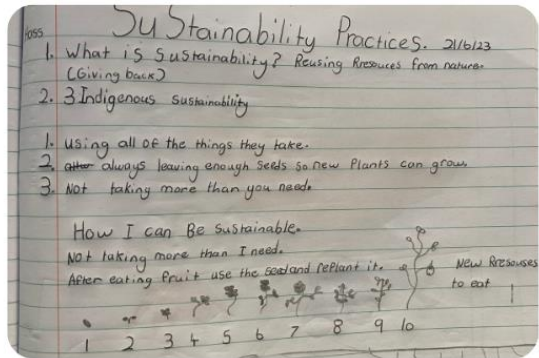 HASS
Sustainability Practices. 21/6/23
1. What is Sustainability? Reusing Rresouces from nature.
(Giving back)
2. 3 Indigenous Sustainability
1. Using all of the things they take.
2. always leaving enough seeds so new Plants can grow.
3. Not taking more than you need.
How I can Be Sustainable.
Not taking more than I need.
After eating fruit use the seed and rePlant it.
New Rresouses
to eat
1 2 3 4 5 6 7 8 9 10